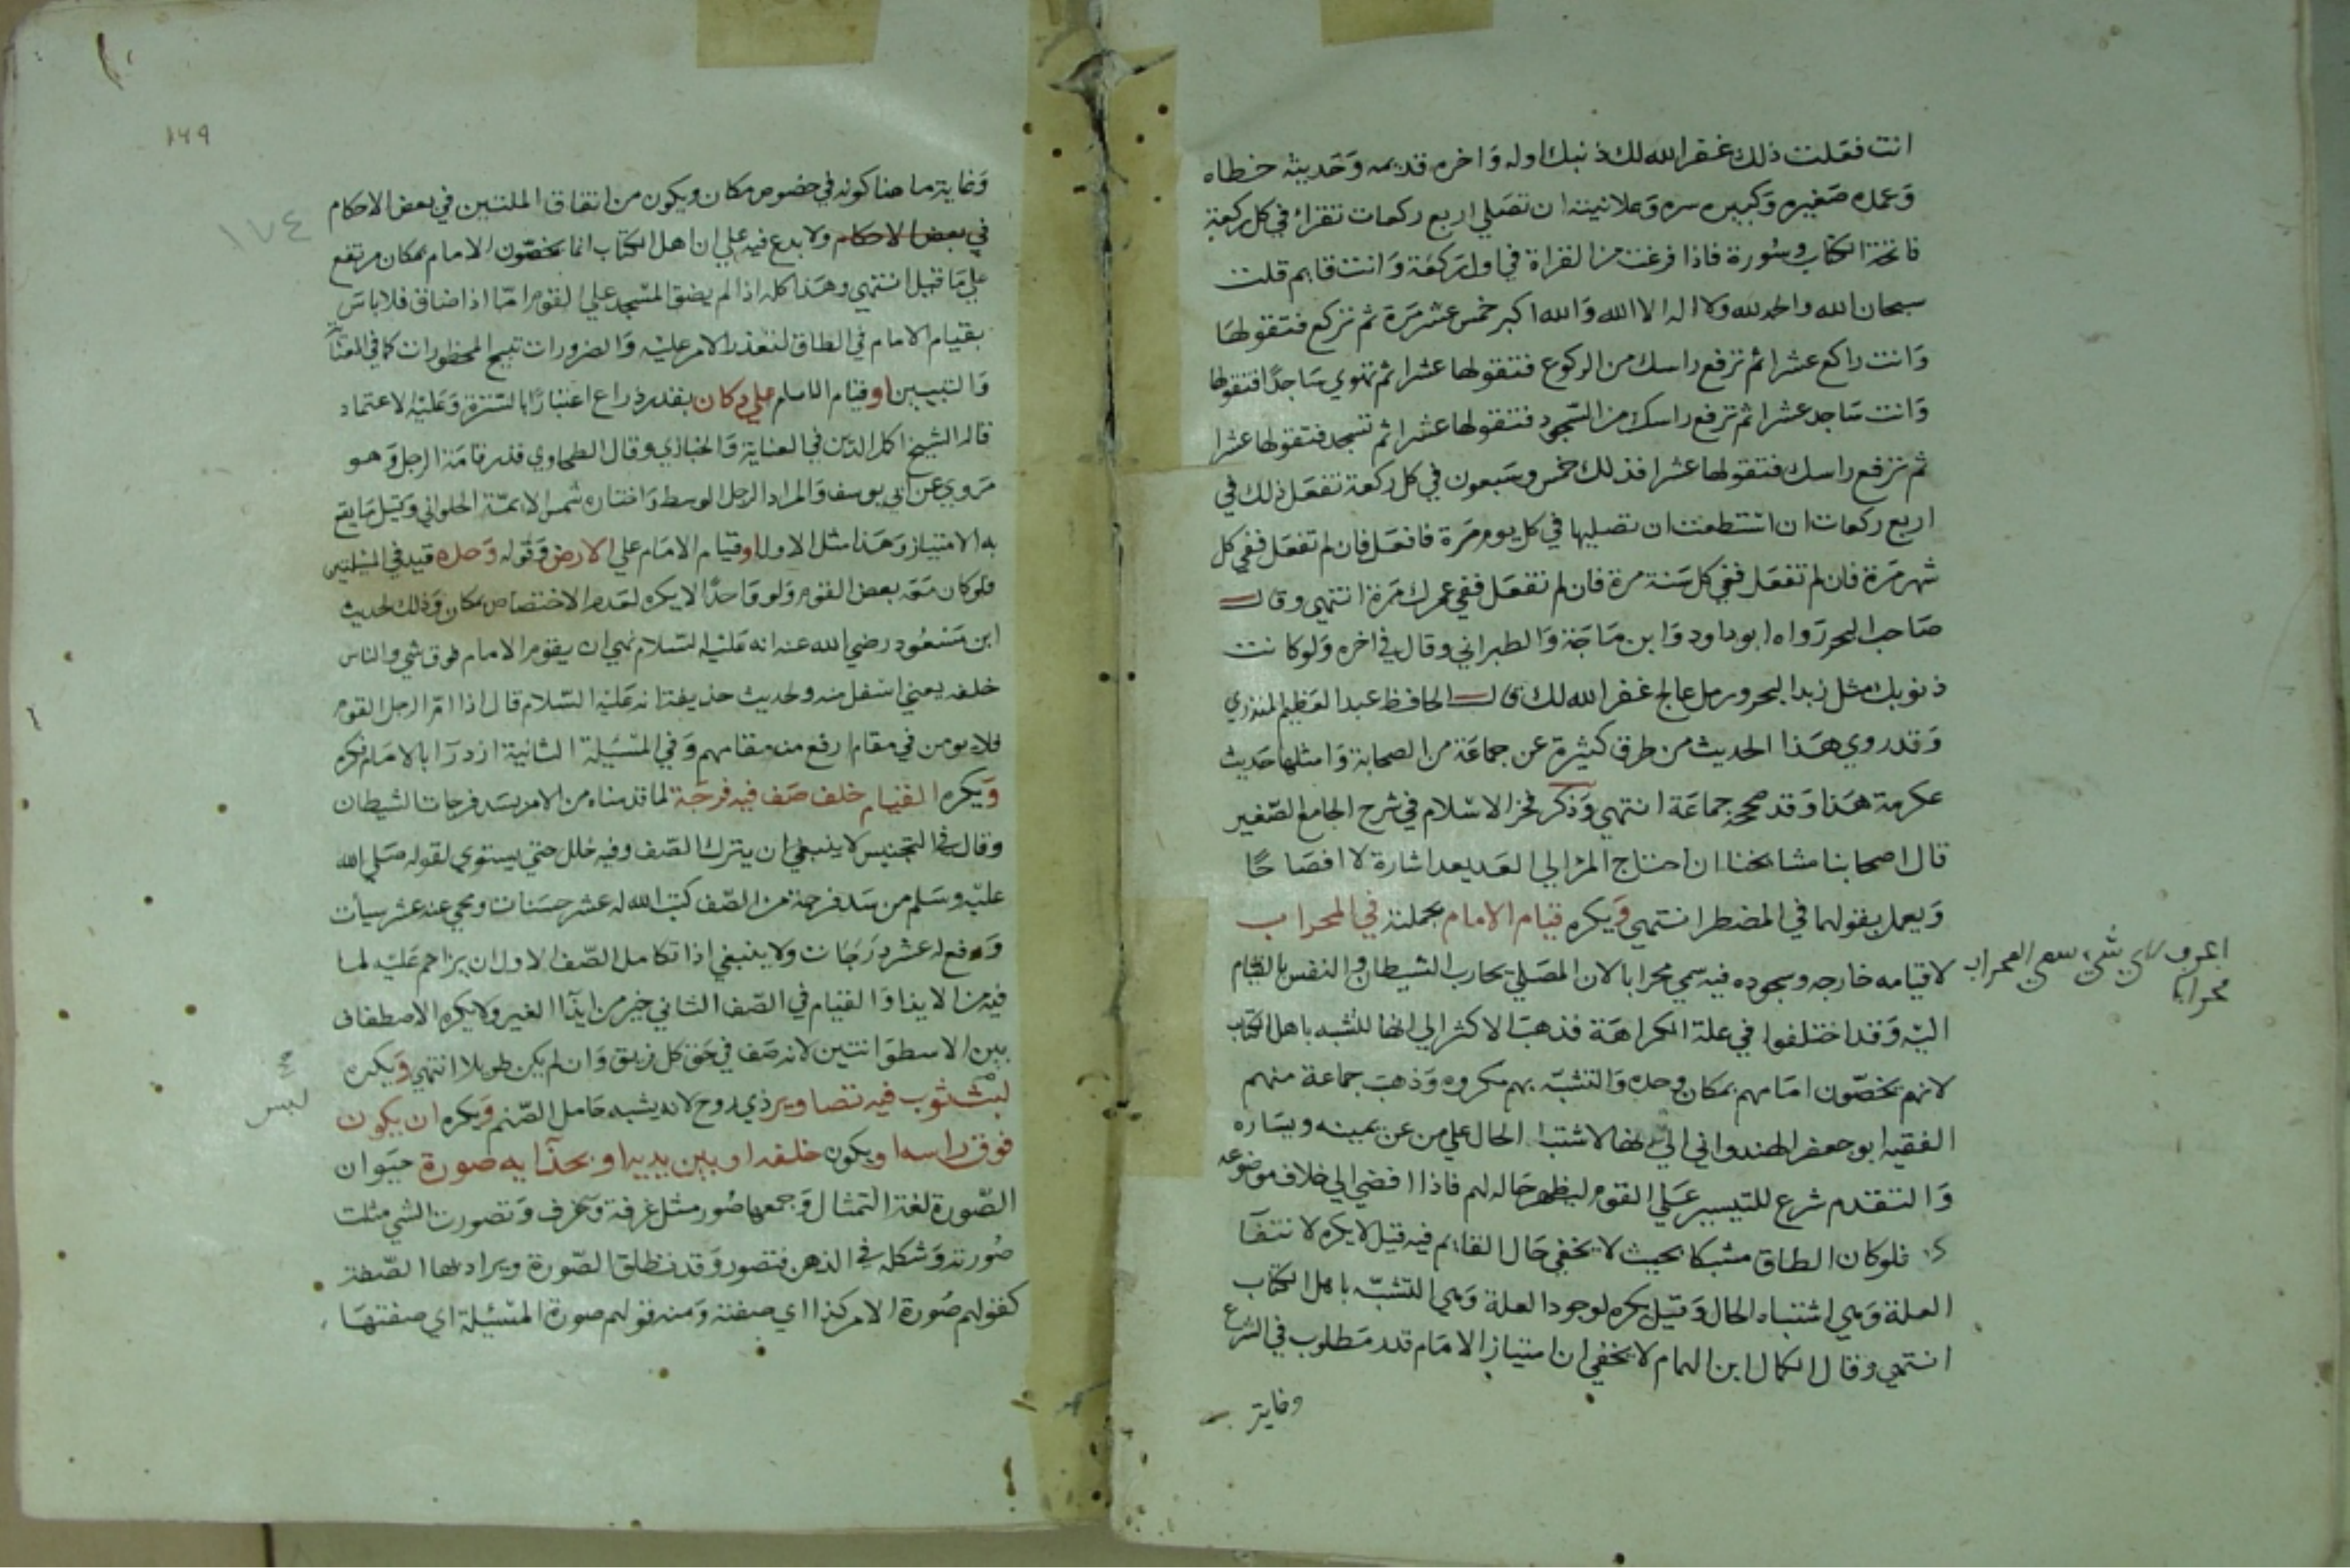 انت فعلت ذلك غفر الله لك ذنبك اوله واخره قديمه وحديثه خطاه
وعمده صغيره وكبيره سره وعلانيته ان تصلي اربع ركعات تقرا في كل ركعة
فاتحة الكتاب وسورة فاذا فرغت من القراة في اول ركعة وانت قايم قلت
سبحان الله والحمد لله ولا اله الا الله والله اكبر خمس عشر مرة ثم تركع فتقولها
وانت راكع عشرا ثم ترفع راسك من الركوع فتقولها عشرا ثم تهوي ساجدا فتقولها
وانت ساجد عشرا ثم ترفع راسك من السجود فتقولها عشرا ثم تسجد فتقولها عشرا
ثم ترفع راسك فتقولها عشرا فذلك خمس وسبعون في كل ركعة تفعل ذلك في
اربع ركعات ان استطعت ان تصليها في كل يوم مرة فافعل فان لم تفعل ففي كل
شهر مرة فان لم تفعل ففي كل سنة مرة فان لم تفعل ففي عمرك مرة انتهي وقال
صاحب البحر رواه ابو داود وابن ماجة والطبراني وقال في اخره ولو كانت
ذنوبك مثل زبد البحر ورمل عالج غفر الله لك قال الحافظ عبد العظيم المنذري
وقد روي هذا الحديث من طرق كثيرة عن جماعة من الصحابة وامثلها حديث
عكرمة هذا وقد صححه جماعة انتهي وذكر فخر الاسلام في شرح الجامع الصغير
قال اصحابنا مشايخنا ان احتاج المرؤ الي العد يعد اشارة لا افصاحا
ويعمل بقولهما في المضطر انتهي ويكره قيام الامام بجملته في المحراب
لا قيامه خارجه وسجوده فيه سمي محرابا لان المصلي يحارب الشيطان والنفس بالقيام
اعرف لاي شي سمي المحراب
محرابا
اليه وقد اختلفوا في علة الكراهة فذهب الاكثر الي انها للتشبه باهل الكتاب
لانهم يخصون امامهم بمكان وحده والتشبه بهم مكروه وذهب جماعة منهم
الفقيه ابو جعفر الهندواني الي انها لاشتباه الحال علي من عن يمينه ويساره
والتقدم شرع للتيسير علي القوم ليظهر حاله لهم فاذا افضي الي خلاف موضوعه
كره فلو كان الطاق مشبكا بحيث لا يخفي حال القايم فيه قيل لا يكره لانتفا
العلة وهي اشتباه الحال وقيل يكره لوجود العلة وهي التشبه باهل الكتاب
انتهي وقال الكمال ابن الهمام لا يخفي ان امتياز الامام قدر مطلوب في الشرع
وغاية
١٦٩
١٧٤
وغاية ما هنا كونه في خصوص مكان ويكون من اتفاق الملتين في بعض الاحكام
في بعض الاحكام ولا بدع فيه علي ان اهل الكتاب انما يخصون الامام بمكان مرتفع
علي ما قيل انتهي وهذا كله اذا لم يضق المسجد علي القوم امّا اذا ضاق فلا باس
بقيام الامام في الطاق لتعذر الامر عليه والضرورات تبيح المحظورات كما في
والتبيين او قيام الامام علي دكان بقدر ذراع اعتبارا بالسترة وعليه الاعتماد
قاله الشيخ اكمل الدين في العناية والخبازي وقال الطحاوي قدر قامة الرجل وهو
مروي عن ابي يوسف والمراد الرجل الوسط واختاره شمس الايمة الحلواني وقيل ما يقع
به الامتياز وهذا مثل الاول او قيام الامام علي الارض وقوله وحده قيد في المسئلتين
فلو كان معه بعض القوم ولو واحدا لا يكره لعدم الاختصاص بمكان وذلك لحديث
ابن مسعود رضي الله عنه انه عليه السلام نهي ان يقوم الامام فوق شي والناس
خلفه يعني اسفل منه ولحديث حذيفة انه عليه السلام قال اذا ام الرجل القوم
فلا يومن في مقام ارفع من مقامهم وفي المسئلة الثانية ازدرآ بالامام فكره
ويكره القيام خلف صف فيه فرجة لما قدمناه من الامر بسد فرجات الشيطان
وقال في التجنيس لا ينبغي ان يترك الصف وفيه خلل حتي يستوي لقوله صلي الله
عليه وسلم من سد فرجة من الصف كتب الله له عشر حسنات ومحي عنه عشر سيات
ورفع له عشر درجات ولا ينبغي اذا تكامل الصف الاول ان يزاحم عليه لما
فيه من الايذا والقيام في الصف الثاني خير من ايذآ الغير ولا يكره الاصطفاف
بين الاسطوانتين لانه صف في حق كل فريق وان لم يكن طويلا انتهي ويكره
لبس ثوب فيه تصاوير ذي روح لانه يشبه حامل الصنم ويكره ان يكون
لبس
فوق راسه او يكون خلفه او بين يديه او بحذآيه صورة حيوان
الصورة لغة التمثال وجمعها صور مثل غرفة وغرف وتصورت الشي مثلت
صورته وشكله في الذهن فتصور وقد تطلق الصورة ويراد بها الصفة
كقولهم صورة الامر كذا اي صفته ومنه قولهم صورة المسئلة اي صفتها